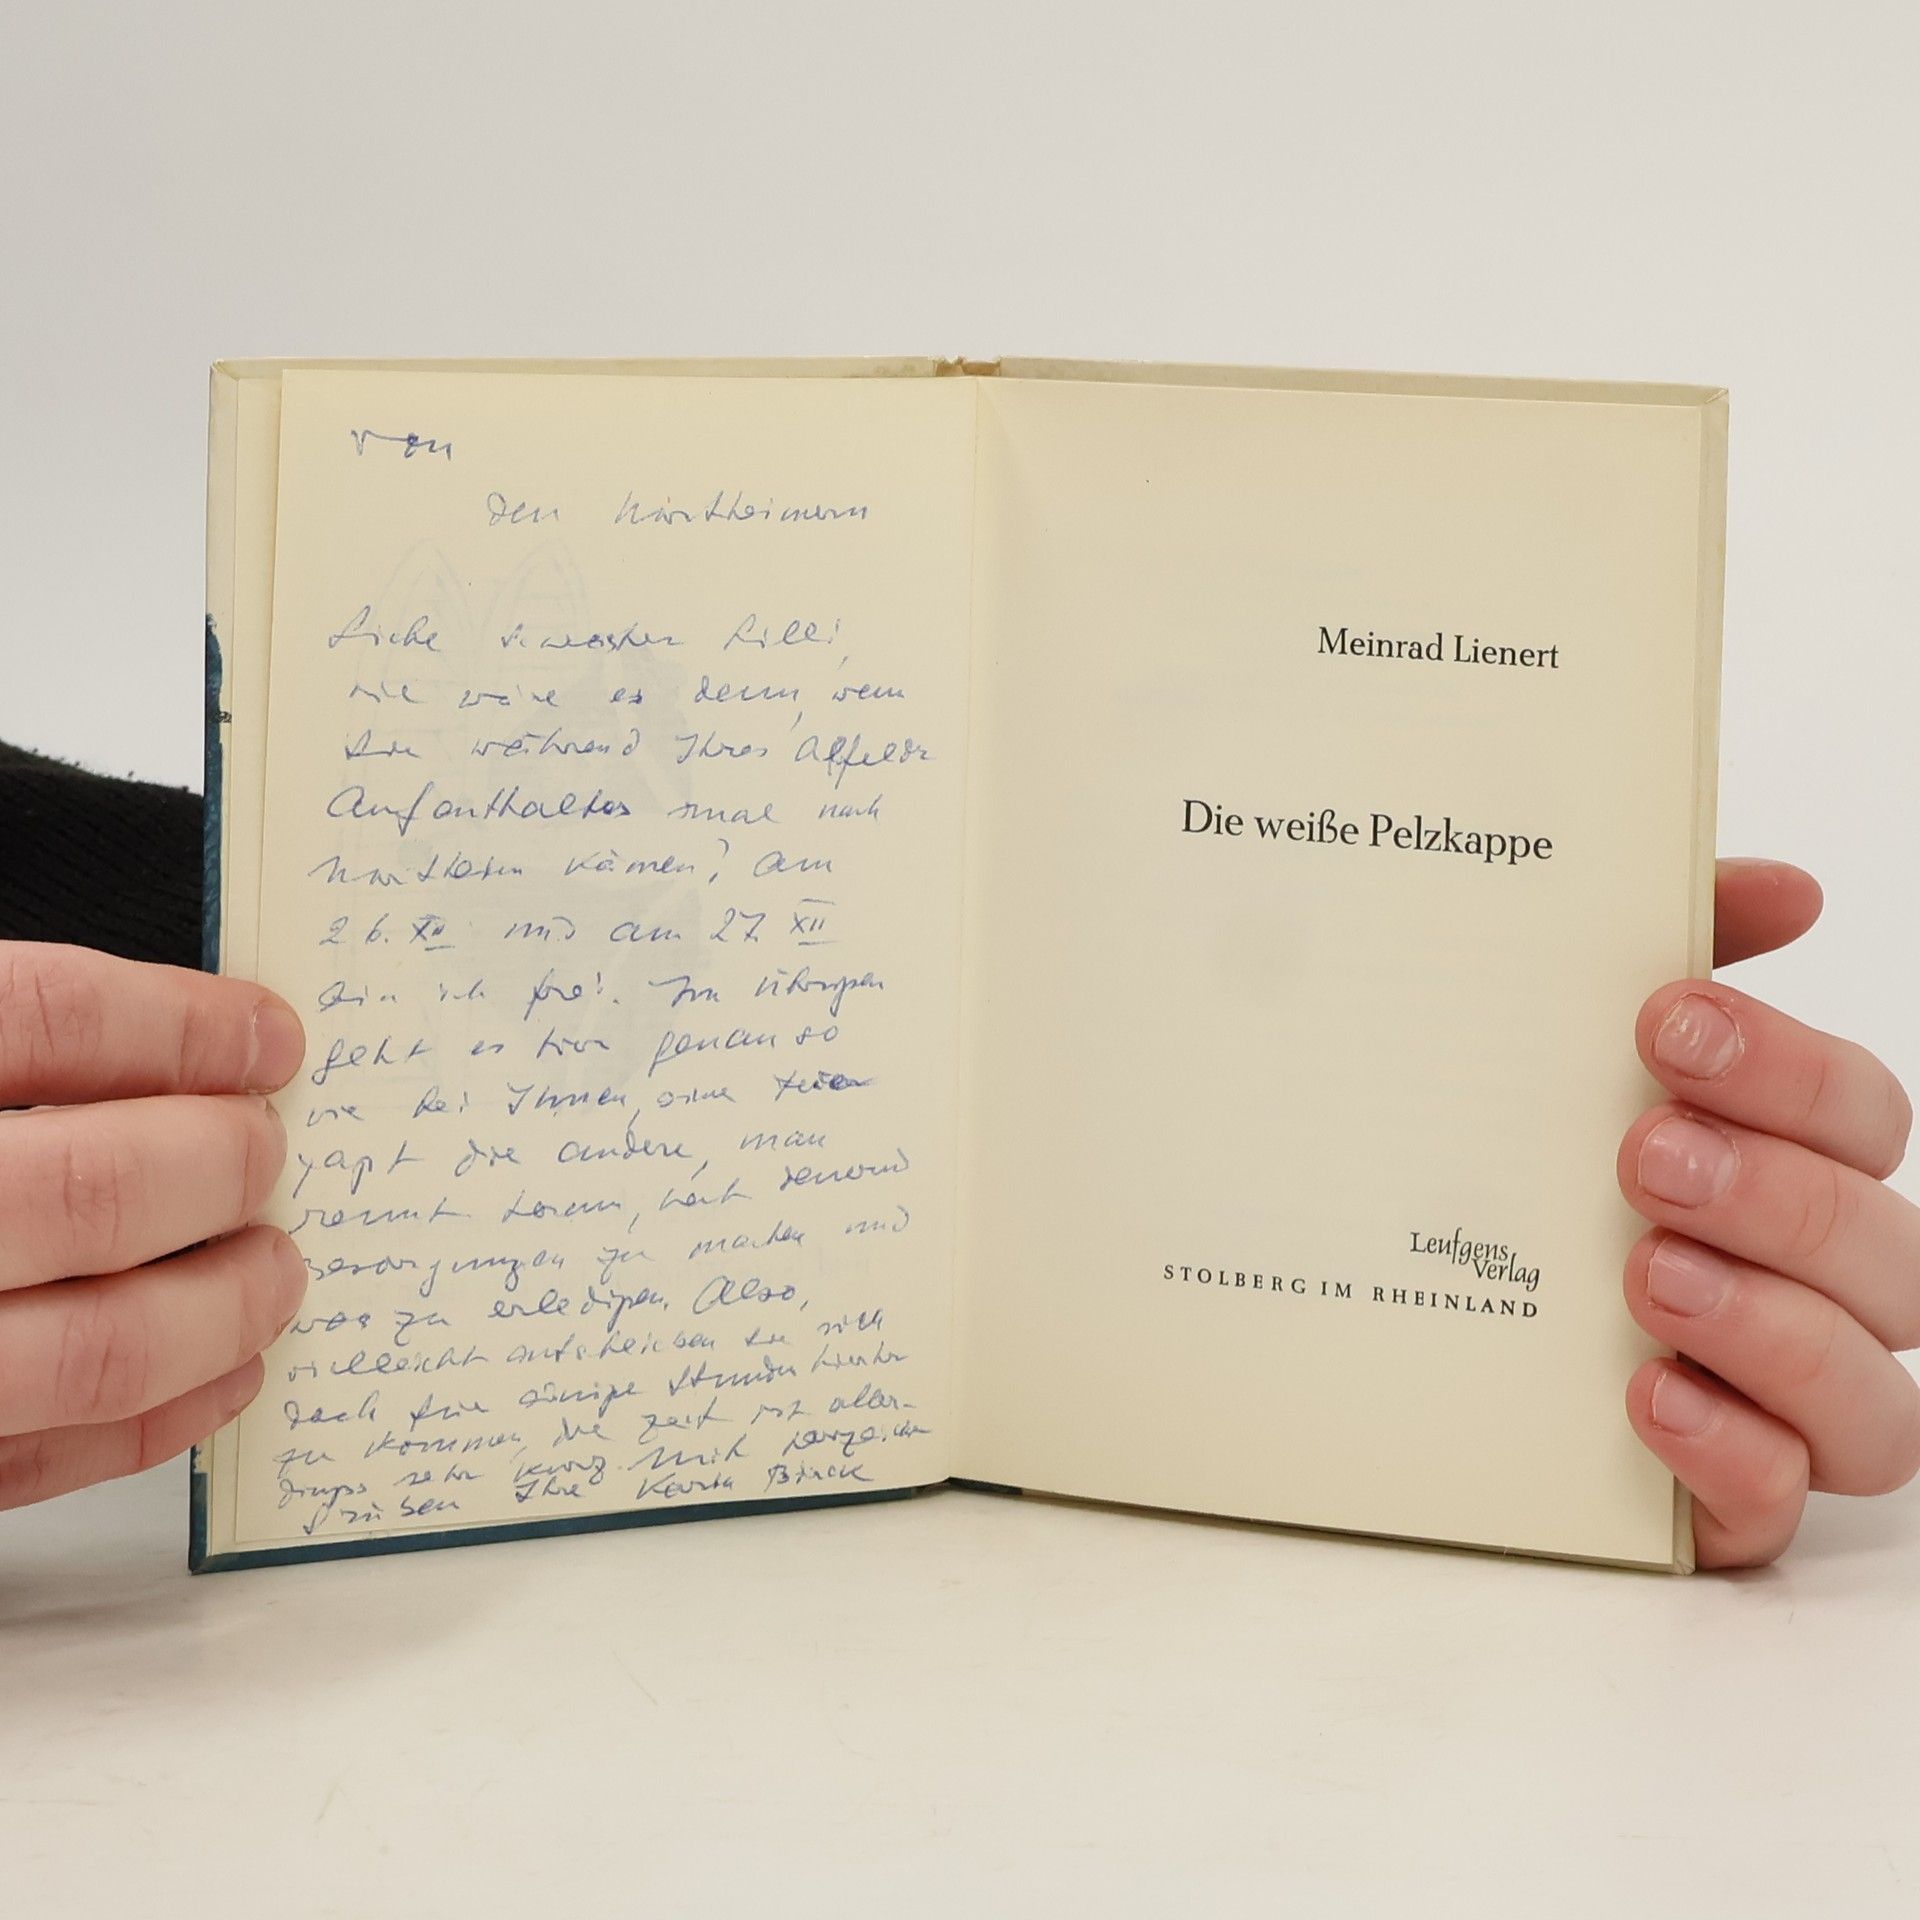 von
den Northeimern
Liebe Schwester Lilli,
wie wäre es denn, wenn
Sie während Ihres Alfelder
Aufenthaltes mal nach
Northeim kämen? Am
26. XII und am 27. XII
bin ich frei. Im übrigen
geht es hier genau so
wie bei Ihnen, eine Feier
jagt die andere, man
rennt herum, hat dauernd
Besorgungen zu machen und
was zu erledigen. Also,
vielleicht entschließen Sie sich
doch für einige Stunden hierher
zu kommen, die Zeit ist aller-
dings sehr kurz. Mit herzlichen
Grüßen Ihre Karla
Meinrad Lienert
Die weiße Pelzkappe
Leufgens
Verlag
STOLBERG IM RHEINLAND